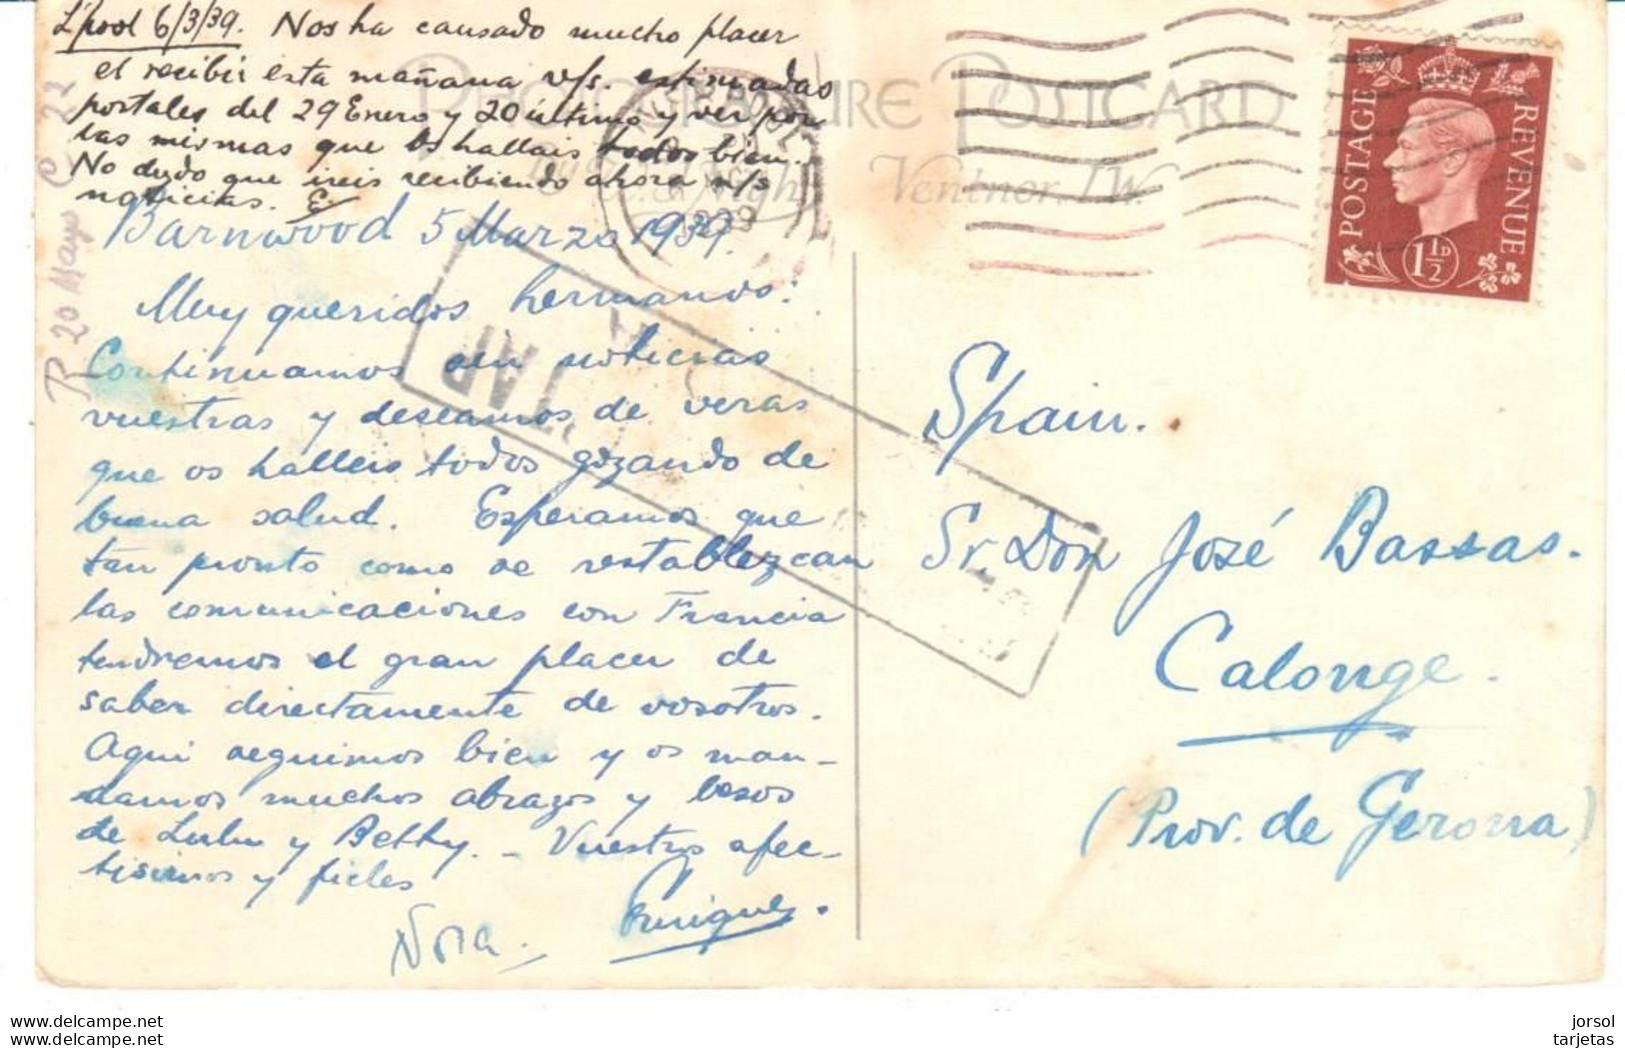 L'pool 6/3/39. Nos ha causado mucho placer
el recibir esta mañana v/s. estimadas
postales del 29 Enero y 20 último y ver por
las mismas que os hallais todos bien.
No dudo que ireis recibiendo ahora n/s
noticias. E.
Barnwood 5 Marzo 1939.
Muy queridos hermanos:
Continuamos sin noticias
vuestras y deseamos de veras
que os halleis todos gozando de
buena salud. Esperamos que
tan pronto como se restablezcan
las comunicaciones con Francia
tendremos el gran placer de
saber directamente de vosotros.
Aqui seguimos bien y os man-
damos muchos abrazos y besos
de Lulu y Betty. - Vuestros afec-
tisimos y fieles
Nora. Enrique.
R 20 Mayo C 22
POSTCARD
Ventnor. I.W.
POSTAGE
REVENUE
1 1/2 D
Spain.
Sr. Don José Bassas.
Calonge.
(Prov. de Gerona)
www.delcampe.net
www.delcampe.net
jorsol
tarjetas